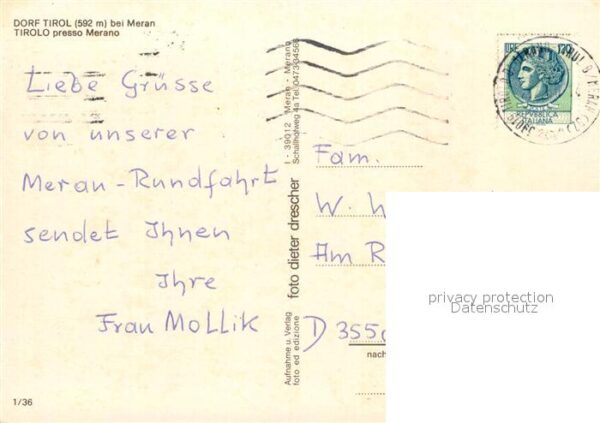 DORF TIROL (592 m) bei Meran
TIROLO presso Merano
Liebe Grüsse
von unserer
Meran-Rundfahrt
sendet Ihnen
Ihre
Frau Mollik
1/36
Aufnahme u. Verlag
foto ed edizione
foto dieter drescher
I - 39012 Meran - Merano
Fam.
W.
Am
D 355
nach
REPUBBLICA
ITALIANA
privacy protection
Datenschutz